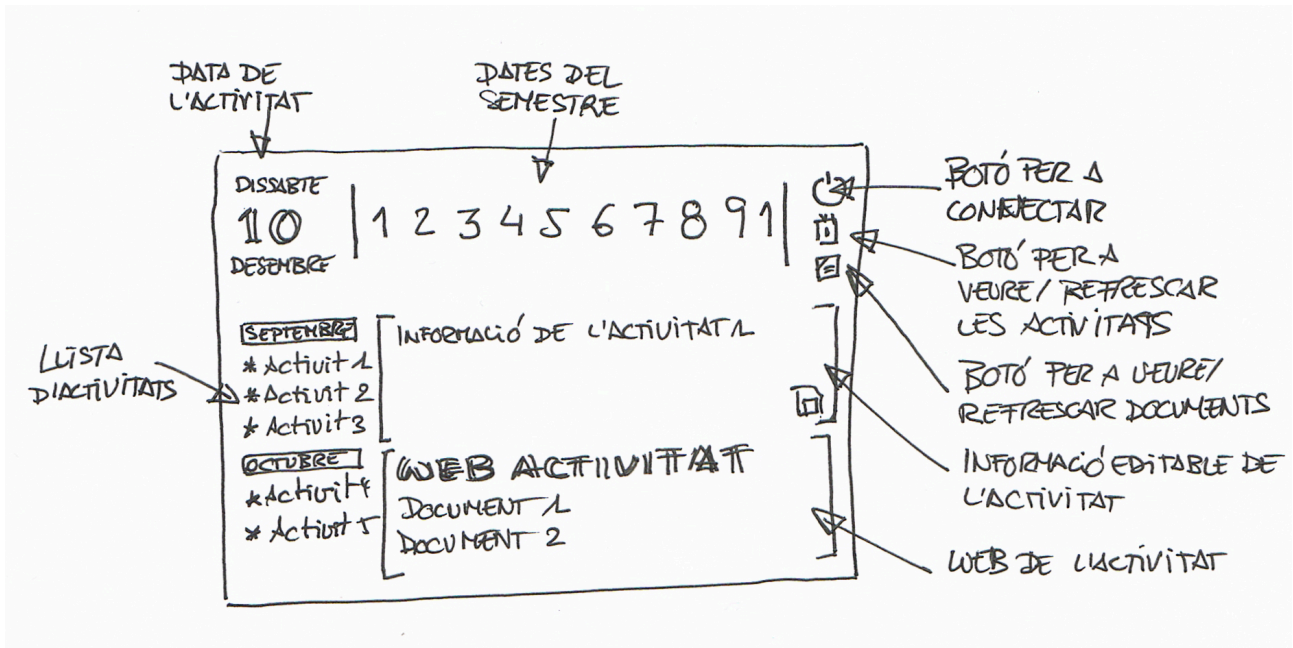 DATA DE
L'ACTIVITAT
DATES DEL
SEMESTRE
DISSABTE
10
DESEMBRE
1 2 3 4 5 6 7 8 9 1
BOTÓ PER A
CONNECTAR
BOTÓ PER A
VEURE/ REFRESCAR
LES ACTIVITATS
BOTÓ PER A VEURE/
REFRESCAR DOCUMENTS
INFORMACIÓ EDITABLE DE
L'ACTIVITAT
WEB DE L'ACTIVITAT
LLISTA
D'ACTIVITATS
SEPTEMBRE
* Activit 1
* Activit 2
* Activit 3
OCTUBRE
* Activit 4
* Activit 5
INFORMACIÓ DE L'ACTIVITAT 1
WEB ACTIVITAT
DOCUMENT 1
DOCUMENT 2